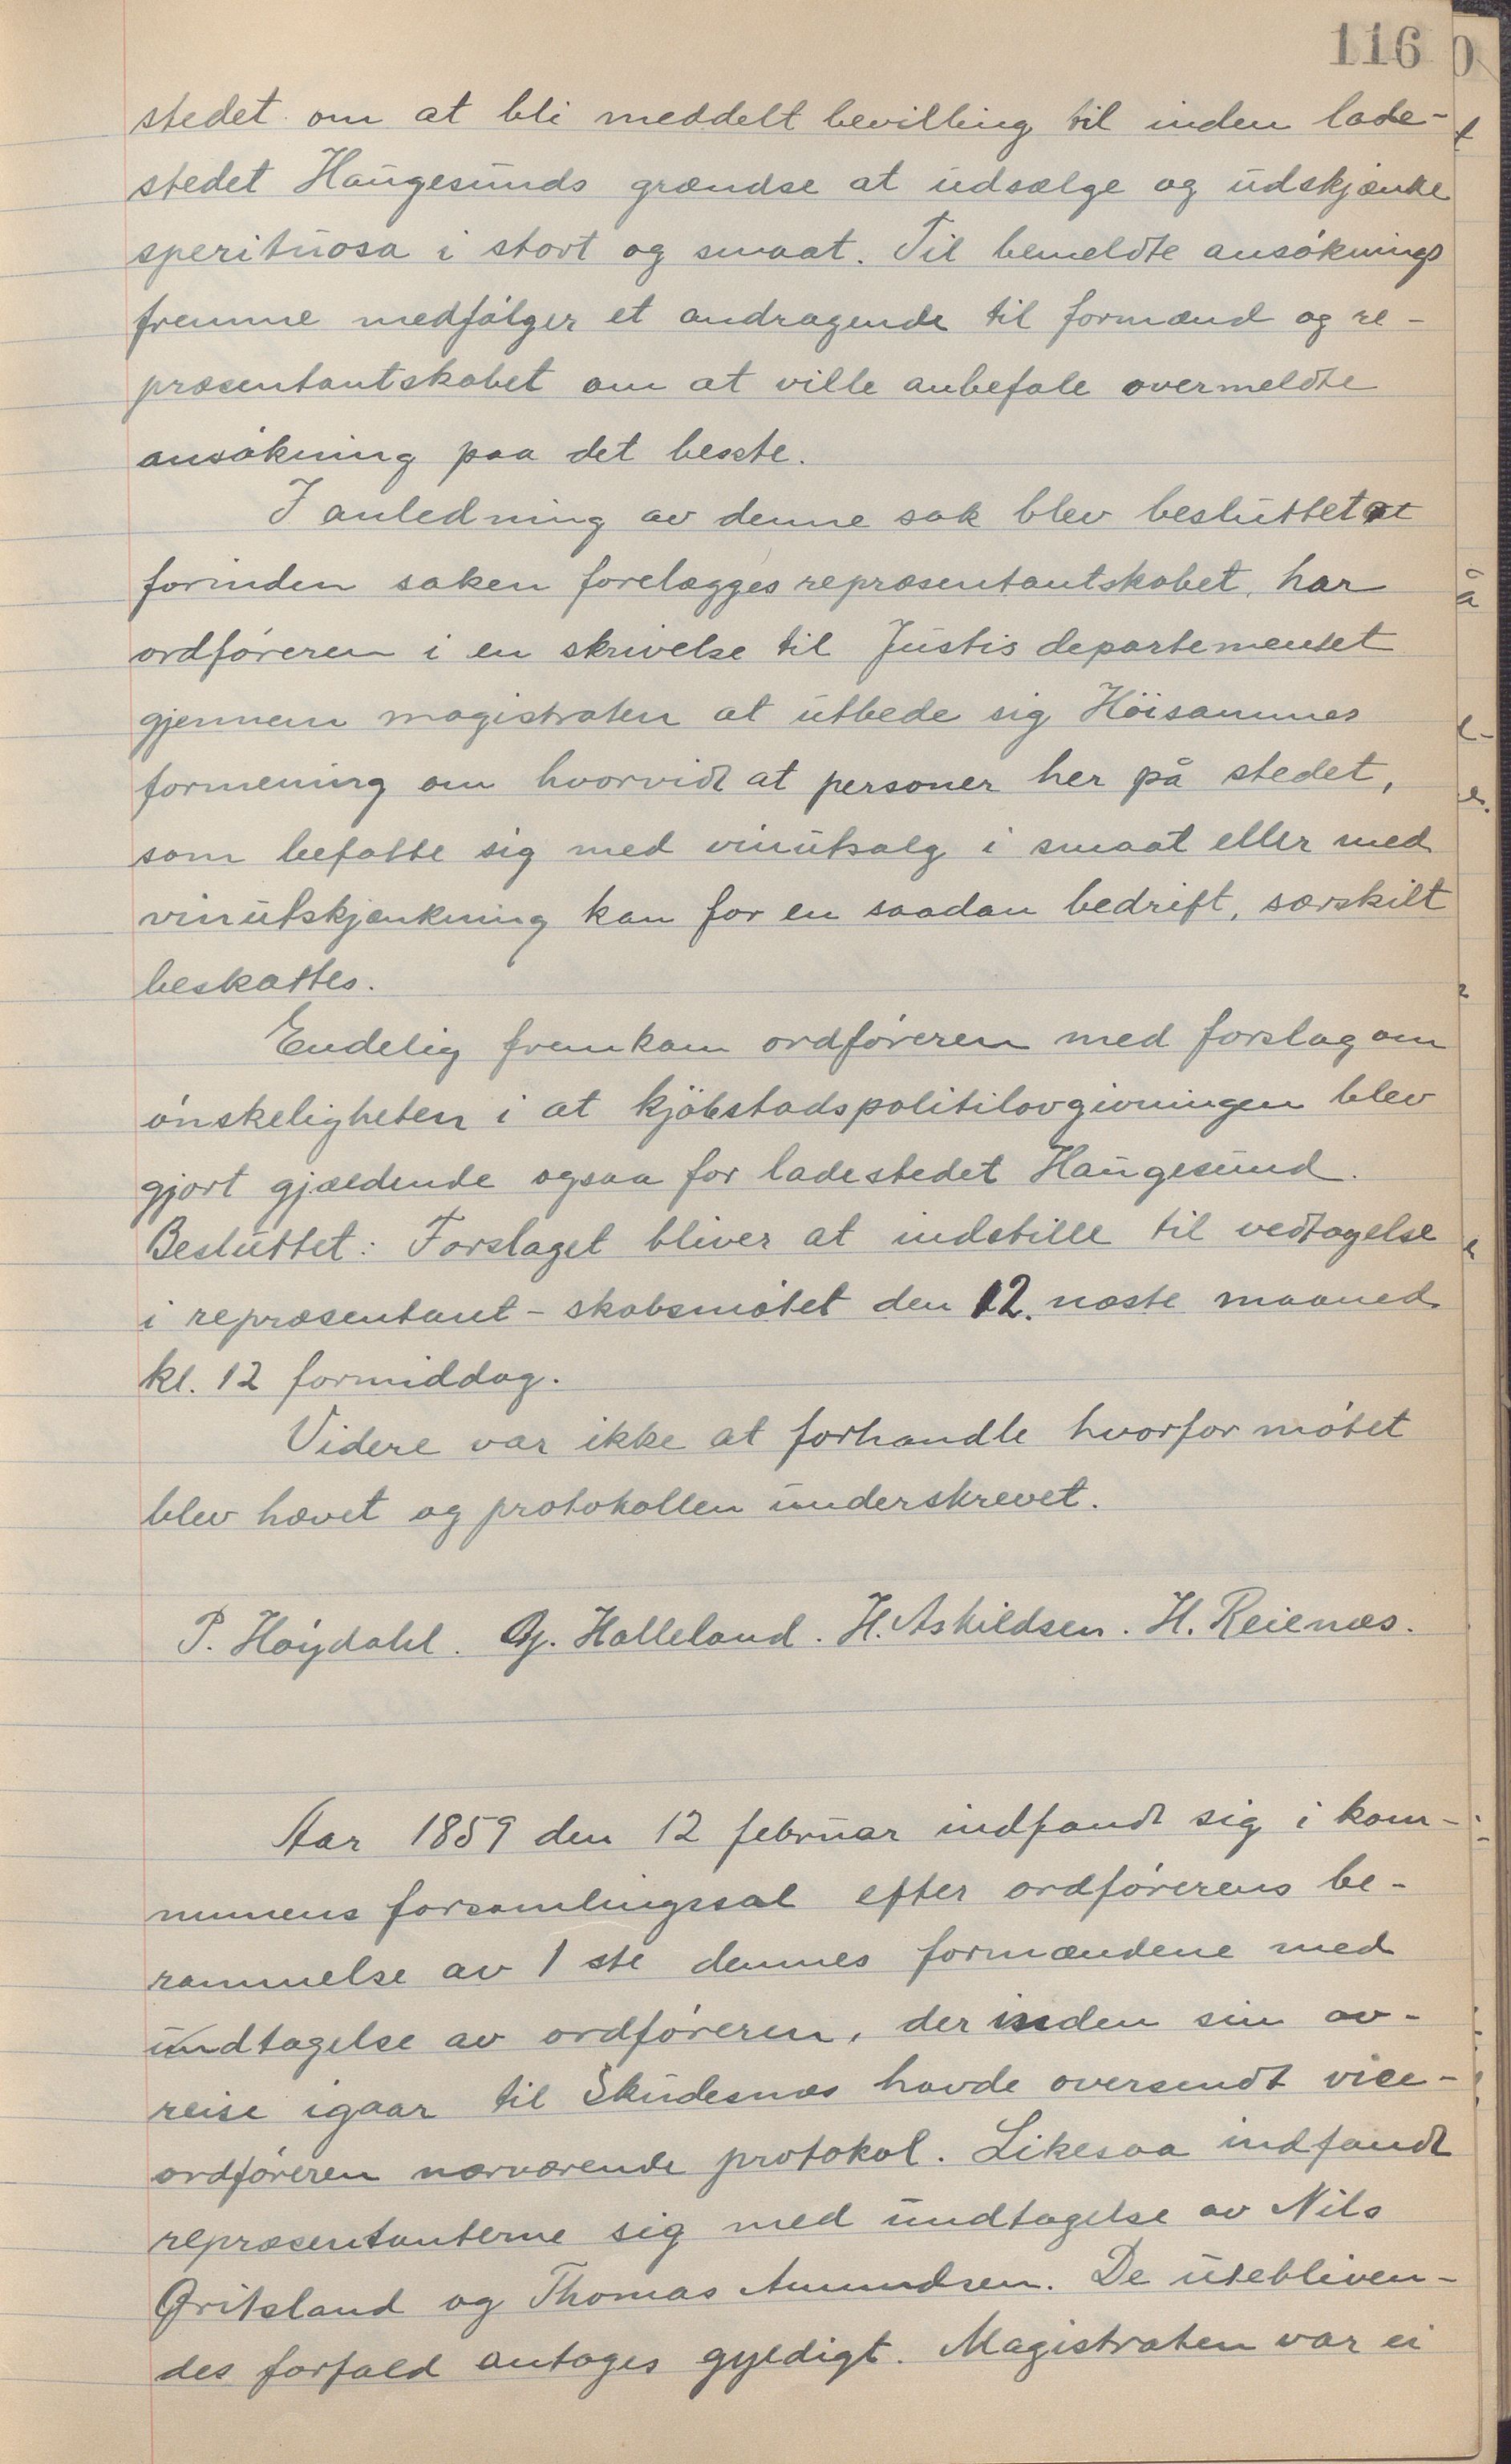 116
stedet om at bli meddelt bevilling til inden lade-
stedet Haugesunds grændse at udsælge og udskjænke
sperituosa i stort og smaat. Til bemeldte ansøknings
fremme medfølger et andragende til formænd og re-
præsentantskabet om at ville anbefale overmeldte
ansøkning paa det beste.
I anledning av denne sak blev besluttet at
forinden saken forelægges repræsentantskabet, har
ordføreren i en skrivelse til Justis departementet
gjennem magistraten at utbede sig Höisammes
formening om hvorvidt at personer her på stedet,
som befatte sig med vinutsalg i smaat eller med
vinutskjænkning kan for en saadan bedrift, særskilt
beskattes.
Endelig fremkom ordføreren med forslag om
ønskeligheten i at kjöbstadspolitilovgivningen blev
gjort gjældende ogsaa for ladestedet Haugesund.
Besluttet: Forslaget bliver at indstille til vedtagelse
i repræsentant-skabsmøtet den 12. næste maaned
kl. 12 formiddag.
Videre var ikke at forhandle hvorfor møtet
blev hævet og protokollen underskrevet.
P. Høydahl. Gj. Halleland. H. Askildsen. H. Reienæs.
Aar 1859 den 12 februar indfandt sig i kom-
munens forsamlingssal efter ordførerens be-
rammelse av 1ste dennes formændene med
undtagelse av ordføreren, der inden sin av-
reise igaar til Skudesnæs havde oversendt vice-
ordføreren nærværende protokol. Likesaa indfandt
repræsentanterne sig med undtagelse av Nils
Gritsland og Thomas Amundsen. De utebliven-
des forfald antages gyldigt. Magistraten var ei